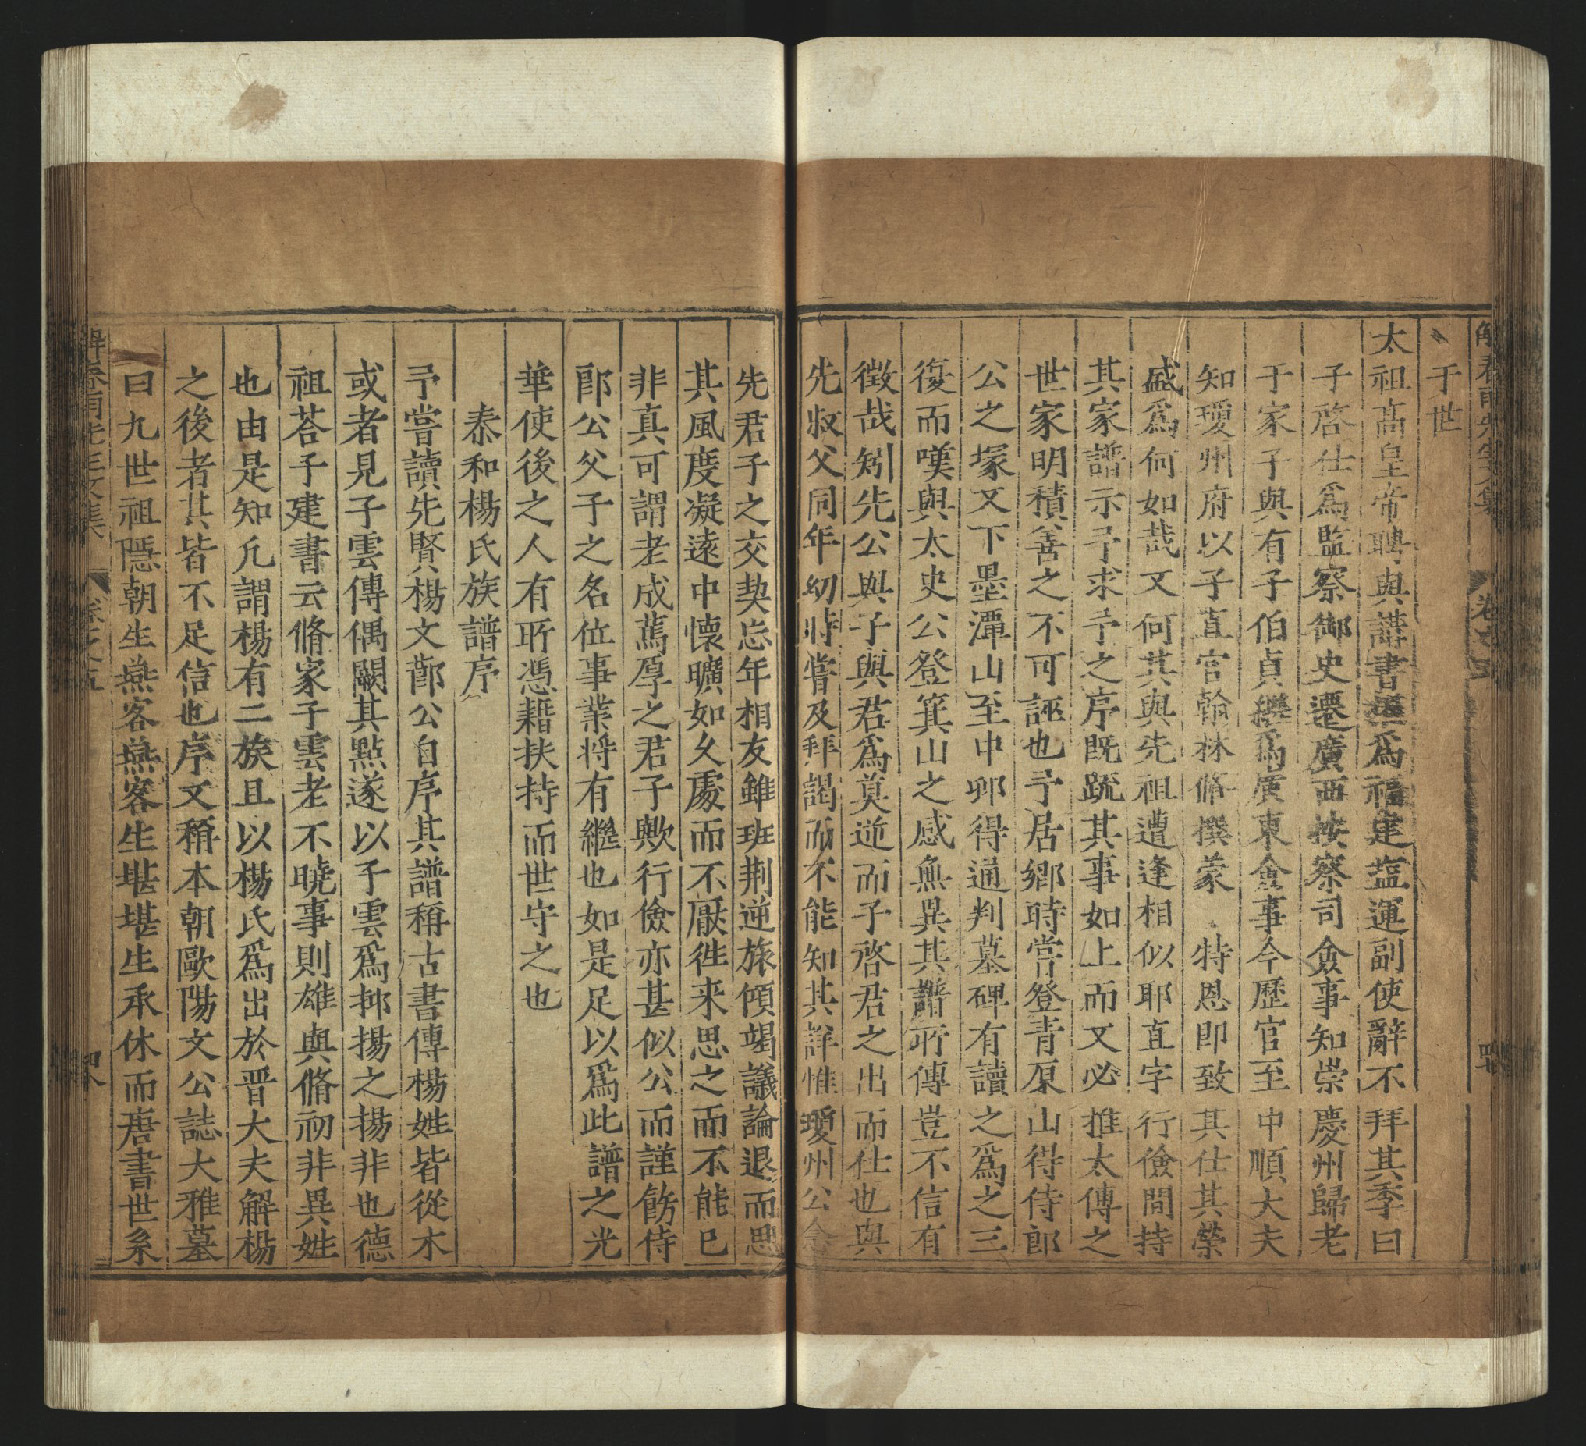 于世
太祖高皇帝聘與講書擢爲福建塩運副使辭不拜其季曰
子啓仕爲監察御史遷廣西按察司僉事知崇慶州歸老
于家子與有子伯貞繼爲廣東僉事今歷官至中順大夫
知瓊州府以子直官翰林脩撰蒙特恩即致其仕其榮
盛爲何如哉又何其與先祖遭逢相似耶直字行儉間持
其家譜示予予求予之序既䟽其事如上而又必推太傳之
世家明積善之不可誣也予居鄉時嘗登青原山得侍郎
公之塚又下墨潭山至中卯得通判墓碑有讀之爲之三
復而嘆與太史公登箕山之感無異其譜所傳豈不信有
徵哉矧先公與子與君爲莫逆而子啓君之出而仕也與
先叔父同年幼時嘗及拜謁而不能知其詳惟瓊州公念
先君子之交契忘年相友雖班荆逆旅傾竭議論退而思
其風度凝遠中懷曠如久處而不厭徃来思之而不能已
非真可謂老成篤厚之君子歟行儉亦甚似公而謹飭侍
郎公父子之名位事業将有繼也如是足以爲此譜之光
華使後之人有所憑藉扶持而世守之也
泰和楊氏族譜序
予嘗讀先賢楊文鄭公自序其譜稱古書傳楊姓皆從木
或者見子雲傳偶闕其點遂以子雲爲抑揚之揚非也德
祖荅子建書云脩家子雲老不曉事則雄與脩初非異姓
也由是知凢謂楊有二族且以楊氏爲出於晋大夫解楊
之後者其皆不足信也序文稱本朝歐陽文公誌大雅墓
曰九世祖隱朝生燕客燕客生堪堪生承休而唐書世系
解春雨先生文集 卷之五 四八